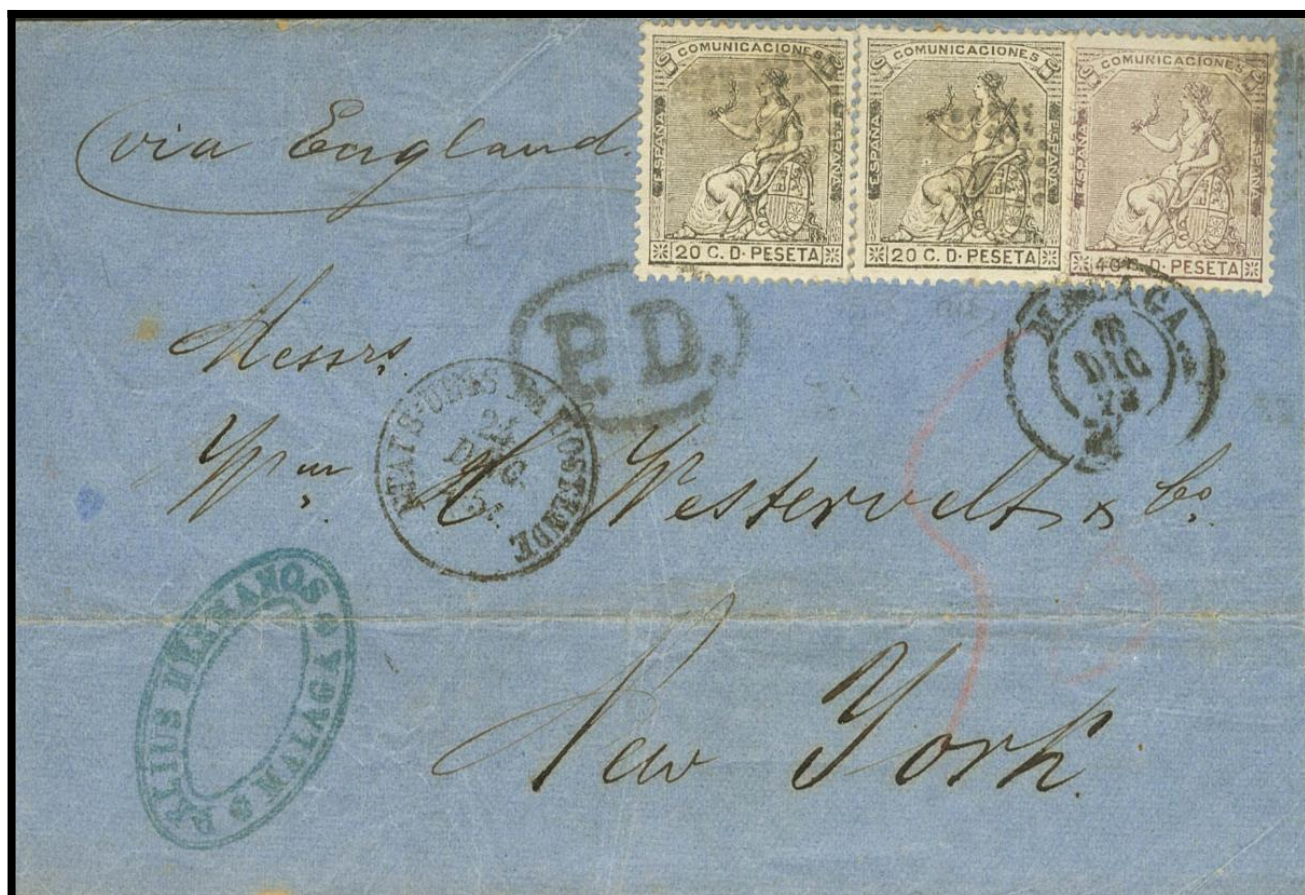 COMUNICACIONES
ESPAÑA ESPAÑA
20 C. D. PESETA
COMUNICACIONES
ESPAÑA ESPAÑA
20 C. D. PESETA
COMUNICACIONES
ESPAÑA ESPAÑA
40 C. D. PESETA
via England.
P.D.
MALAGA
DIC
73
Messrs
ETATS-UNIS PAR OSTENDE
24
DEC
Wm H Westervelt & Co.
RIUS HERMANOS
MALAGA
New York.